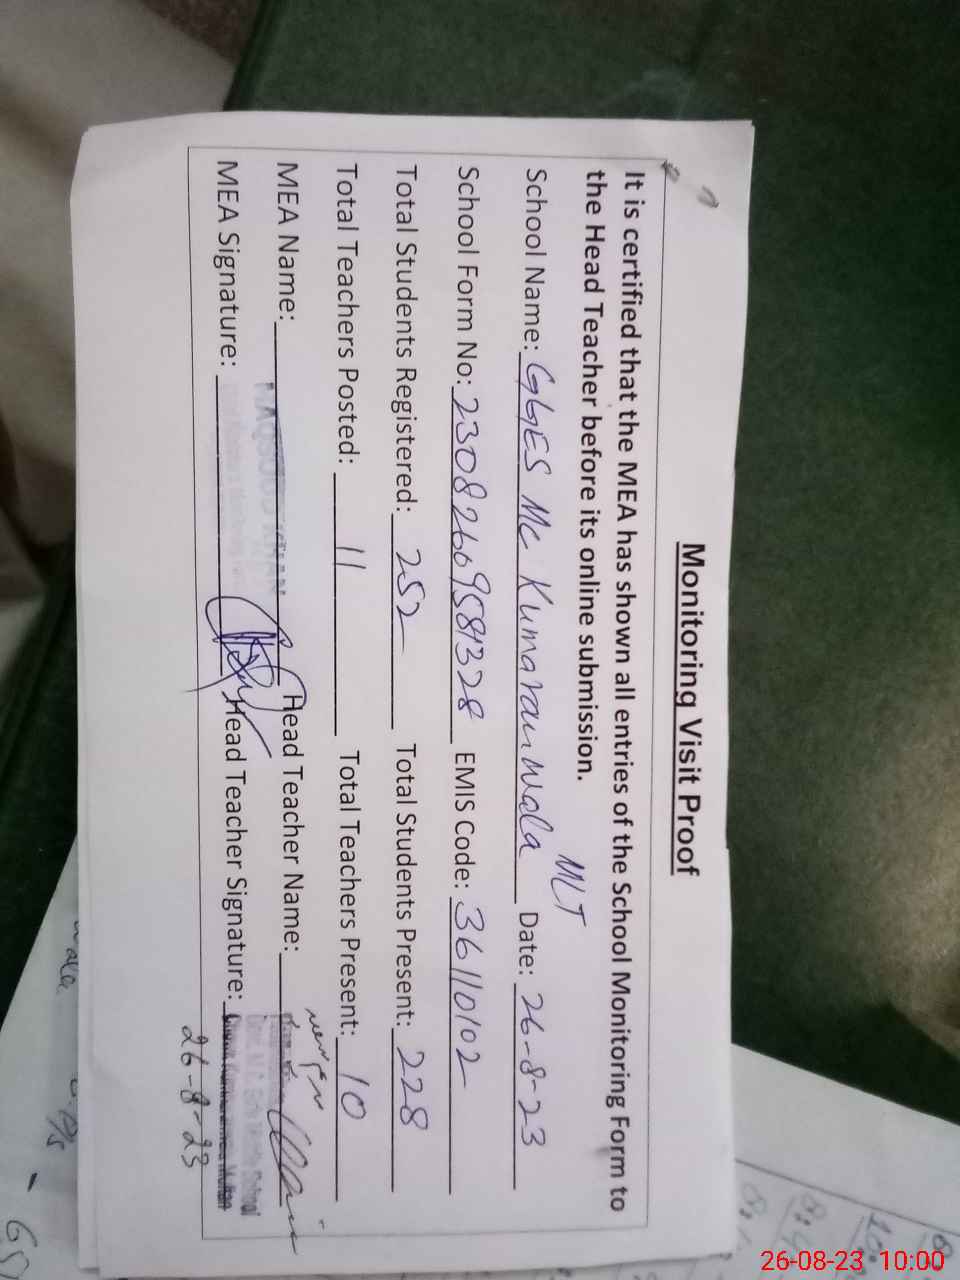 Monitoring Visit Proof
It is certified that the MEA has shown all entries of the School Monitoring Form to
the Head Teacher before its online submission.
MLT
School Name: GGES MC Kumaranwala Date: 26-8-23
School Form No: 23082669581328 EMIS Code: 36110102
Total Students Registered: 252 Total Students Present: 228
Total Teachers Posted: 11 Total Teachers Present: 10
MEA Name: MAQSOOD KHAN Head Teacher Name:
MEA Signature: Head Teacher Signature:
26-8-23
26-08-23 10:00